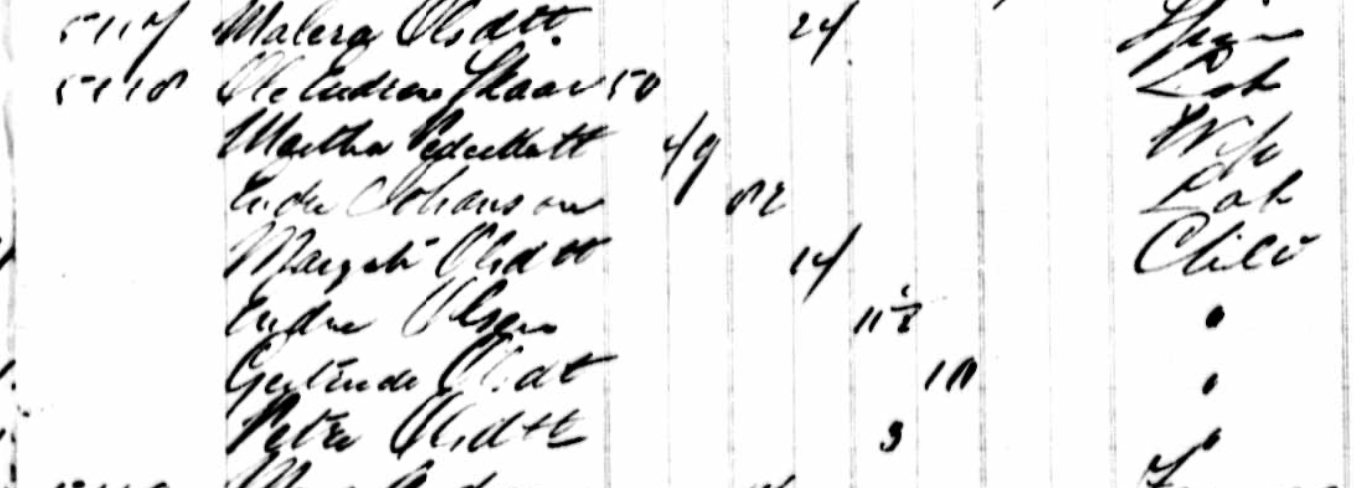 5117 Malena Olsdtt. 24 Spin
5118 Ole Endsen Skaar 50 Lab
Martha Pedersdatt 49 Wife
Endre Johanson 82 Lab
Margith Olsdtt 14 Child
Endre Olsen 11½ "
Gertrude Olsdt 10 "
Petra Olsdtt 3 "